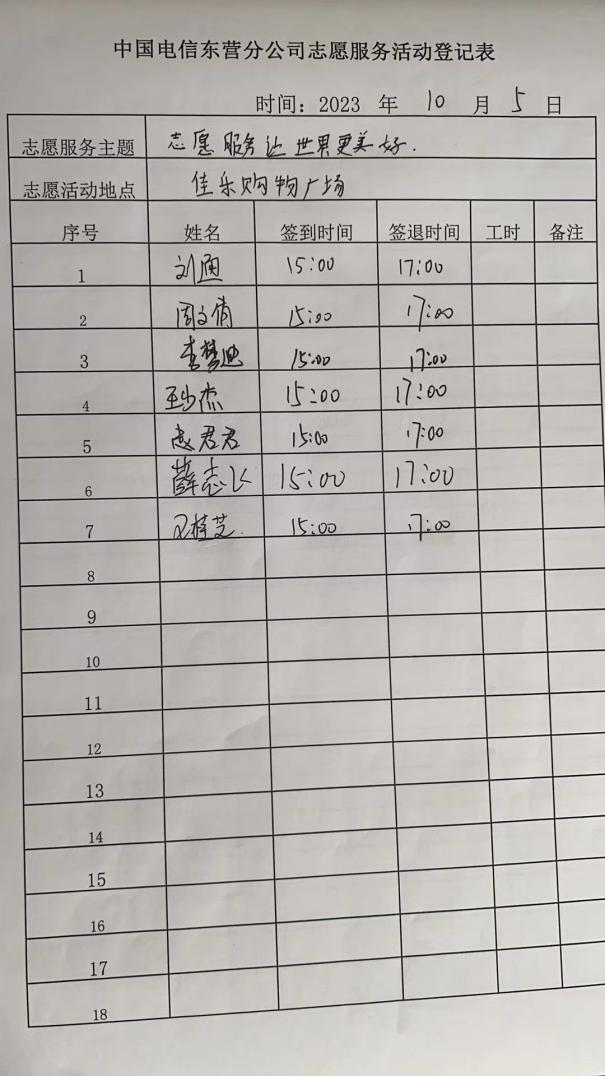 中国电信东营分公司志愿服务活动登记表
时间：2023 年 10 月 5 日
志愿服务主题 志愿服务让世界更美好.
志愿活动地点 佳乐购物广场
序号 姓名 签到时间 签退时间 工时 备注
1 刘通 15:00 17:00
2 周文倩 15:00 17:00
3 李梦迪 15:00 17:00
4 王少杰 15:00 17:00
5 君君 15:00 17:00
6 薛志飞 15:00 17:00
7 桂芝. 15:00 17:00
8
9
10
11
12
13
14
15
16
17
18